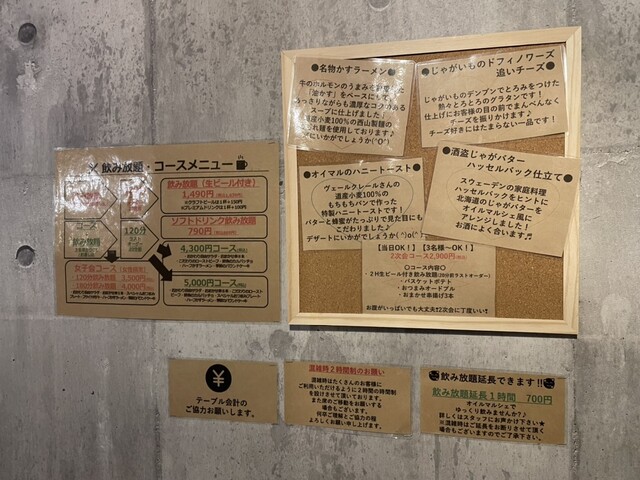 飲み放題・コースメニュー
飲み放題(生ビール付き)
1,490円
※クラフトビールは1杯+130円
※プレミアムドリンクは1杯+100円
ソフトドリンク飲み放題
790円
コース
飲み放題
120分
4,300円コース
5,000円コース
女子会コース
120分飲み放題 3,500円
180分飲み放題 4,000円
●名物かすラーメン●
牛のホルモンのうまみを
「油かす」をベースにした
あっさりながらも濃厚なコクがある
スープに仕上げました!
道産小麦100%の西山製麺の
麺を使用しております♪
〆にいかがでしょうか(^O^)
●じゃがいものドフィノワーズ
追いチーズ●
じゃがいものデンプンでとろみをつけた
熱々とろとろのグラタンです!
仕上げにお客様の目の前でまんべんなく
チーズを振りかけます♪
チーズ好きにはたまらない一品です!
●オイマルのハニートースト●
ヴェールクレールさんの
道産小麦100%の
もちもちパンで作った
特製ハニートーストです!
バターと蜂蜜がたっぷりで見た目にも
こだわりました♪
デザートにいかがでしょうか(^o^)
●酒盗じゃがバター
ハッセルバック仕立て●
スウェーデンの家庭料理
ハッセルバックをヒントに
北海道のじゃがバターを
オイルマルシェ風に
アレンジしました!
お酒によく合います♬
【当日OK!】【3名様〜OK!】
2次会コース2,900円
○コース内容○
・2H生ビール付き飲み放題(30分前ラストオーダー)
・バスケットポテト
・おつまみオードブル
・おまかせ串揚げ3本
お腹がいっぱいでも大丈夫!2次会に丁度いい!
¥
テーブル会計の
ご協力お願いします。
混雑時2時間制のお願い
混雑時はたくさんのお客様に
ご利用いただけるように2時間の時間制
を設けさせて頂いております。
また席のご移動をお願いする
場合もございます。
何卒ご理解とご協力の程
よろしくお願い申し上げます。
飲み放題延長できます!!
飲み放題延長1時間 700円
オイルマルシェで
ゆっくり飲みませんか?♪
詳しくはスタッフにお声掛け下さい★
※混雑時はご延長をお断りさせて頂く
場合もございますのでご了承下さい。